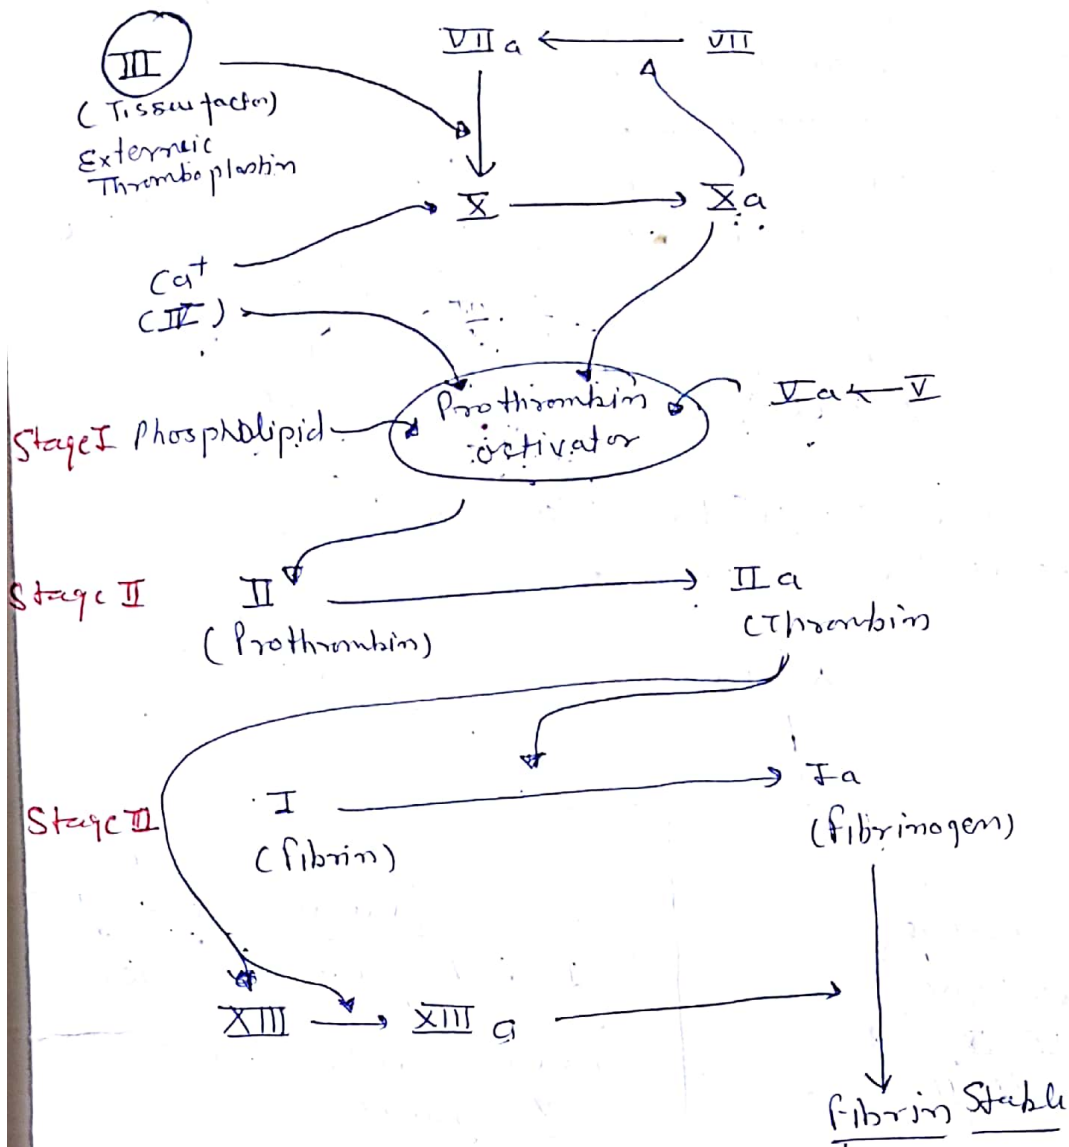 III
VII a ← VII
(Tissue factor)
Externeic
Thromboplastin
X → Xa
Ca+
(IV)
Stage I Phospholipid
Prothrombin
activator
Va ← V
Stage II
II → IIa
(Prothrombin)
(Thrombin
Stage III
I → Ia
(fibrin)
(fibrinogen)
XIII → XIII a
fibrin Stable